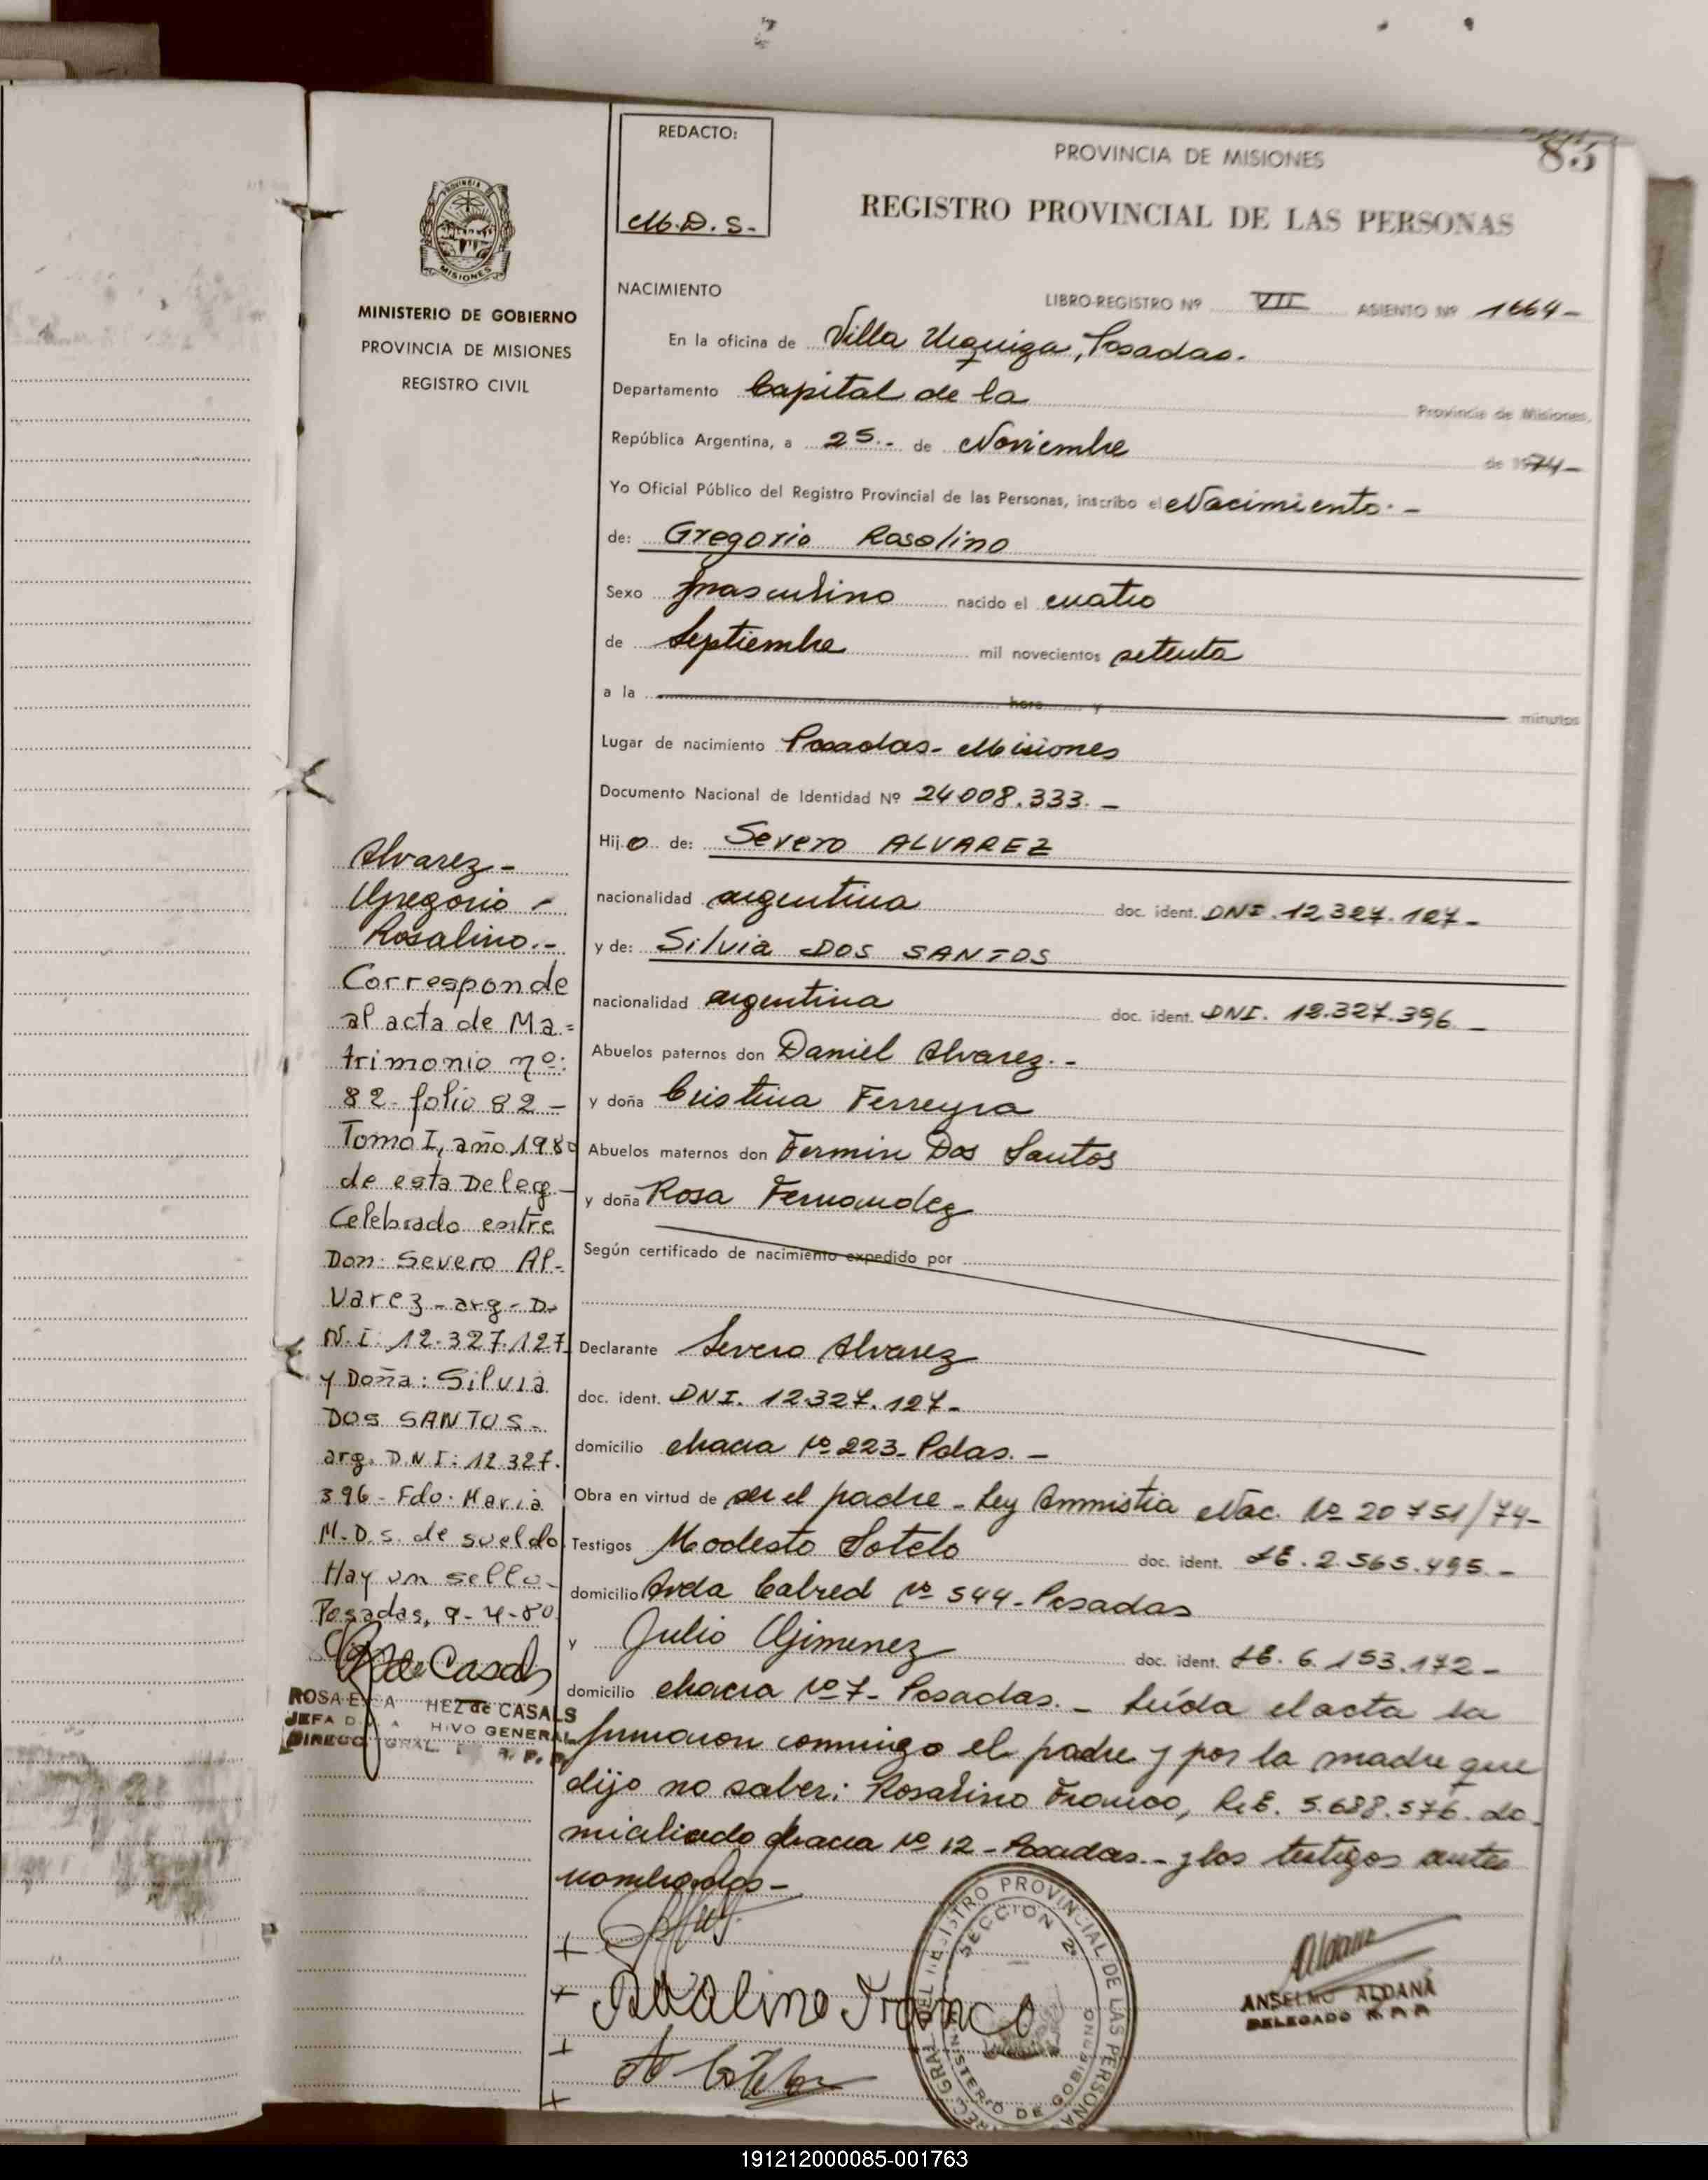 REDACTO:
M.D.S.-
PROVINCIA DE MISIONES
83
REGISTRO PROVINCIAL DE LAS PERSONAS
PROVINCIA DE
MISIONES
MINISTERIO DE GOBIERNO
PROVINCIA DE MISIONES
REGISTRO CIVIL
NACIMIENTO
LIBRO-REGISTRO Nº VII ASIENTO Nº 1664-
En la oficina de Villa Urquiza, Posadas.
Departamento Capital de la Provincia de Misiones,
República Argentina, a 25.- de Noviembre de 1974-
Yo Oficial Público del Registro Provincial de las Personas, inscribo el Nacimiento.-
de: Gregorio Rosalino
Sexo masculino nacido el cuatro
de Septiembre mil novecientos setenta
a la hora y minutos
Lugar de nacimiento Posadas- Misiones
Documento Nacional de Identidad Nº 24008.333.-
Hijo de: Severo ALVAREZ
nacionalidad argentina doc. ident. DNI. 12.327.127-
y de: Silvia DOS SANTOS
nacionalidad argentina doc. ident. DNI. 12.327.396.-
Abuelos paternos don Daniel Alvarez.-
y doña Cristina Ferreyra
Abuelos maternos don Fermin Dos Santos
y doña Rosa Fernandez
Según certificado de nacimiento expedido por
Declarante Severo Alvarez
doc. ident. DNI. 12327.127-
domicilio chacra Nº 223- Pdas.-
Obra en virtud de ser el padre - Ley Amnistia Nac. Nº 20751/74-
Testigos Modesto Sotelo doc. ident. LE. 2.565.495.-
domicilio Avda Cabred Nº 544- Posadas
y Julio Gimenez doc. ident. LE. 6.153.172-
domicilio chacra Nº 7- Posadas.- Leída el acta la
firmaron conmigo el padre y por la madre que
dijo no saber: Rosalino Franco, L.E. 5.688.576. do
miciliado chacra Nº 12- Posadas.- y los testigos antes
nombrados-
Alvarez-
Gregorio-
Rosalino.-
Corresponde
al acta de Ma=
trimonio nº:
82- folio 82-
Tomo I, año 1980
de esta Deleg-
Celebrado entre
Don: Severo Al-
varez- arg- D.
N.I: 12.327.127
y Doña: Silvia
DOS SANTOS-
arg. D.N.I: 12.327.
396- Fdo. Maria
M.D.S. de sueldo
Hay un sello-
Posadas, 9-4-80
de Casals
ROSA E. HEZ de CASALS
JEFA HIVO GENERAL
DIRECC GRAL R. P. P.
Rosalino Franco
REGISTRO PROVINCIAL DE LAS PERSONAS
SECCION 2ª
MINISTERIO DE GOBIERNO
Aldana
ANSELMO ALDANA
DELEGADO R P P
191212000085-001763